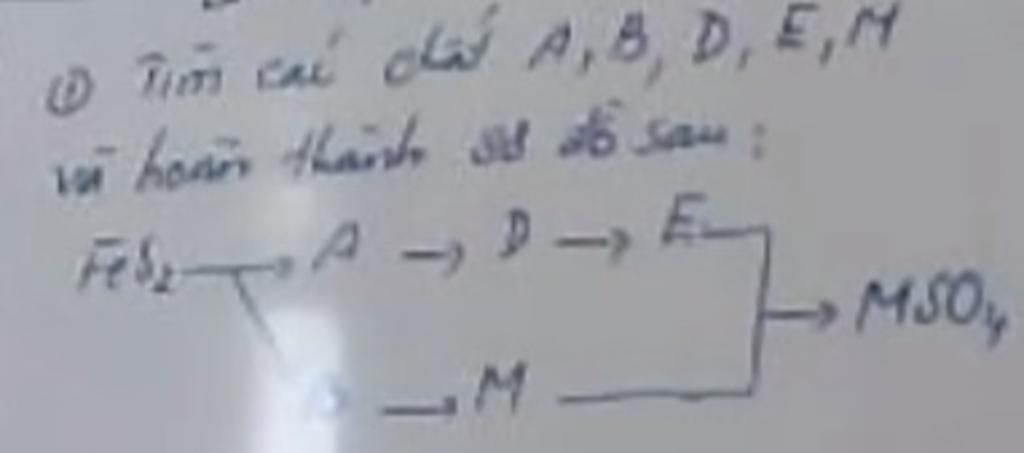 ① Tìm các chất A, B, D, E, M
và hoàn thành sơ đồ sau:
FeS₂ → A → D → E
→ MSO₄
→ M